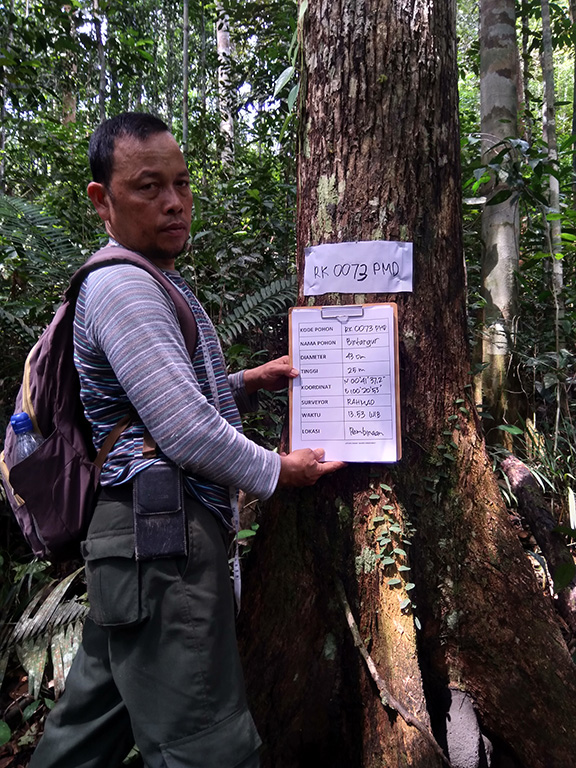 RK 0073 PMD
KODE POHON RK 0073 PMD
NAMA POHON
DIAMETER 43 cm
TINGGI 25 m
KOORDINAT N 00°41'37,2"
E 100°20'53"
SURVEYOR RAHMAD
WAKTU 13.53 WIB
LOKASI Pembinaan